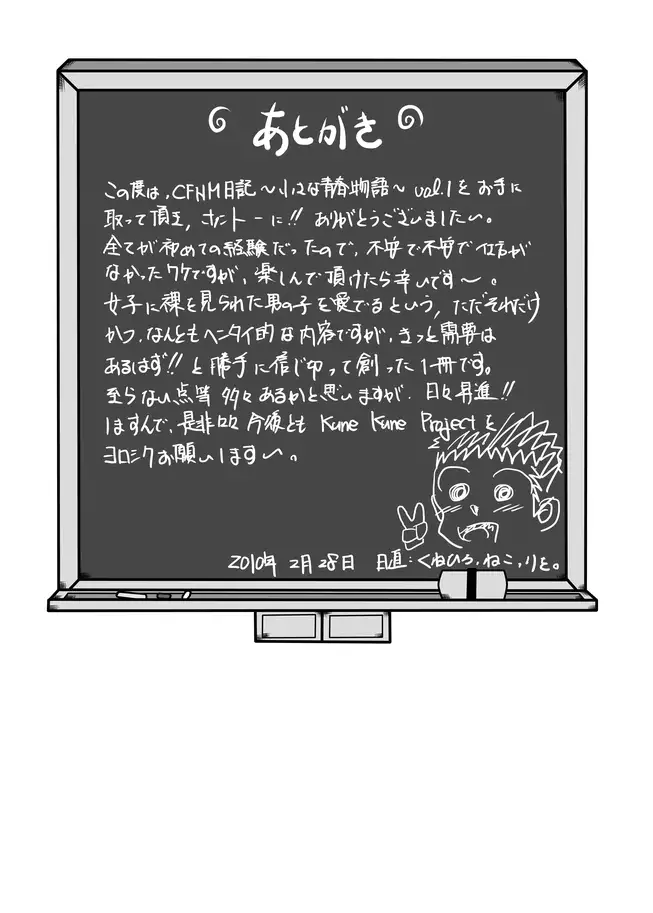 あとがき
この度は、CFNM日記～小さな青春物語～ val.1を お手に
取って頂き、まことーに!! ありがとうございましたい。
全てが初めての経験だったので、不安で不安で仕方が
なかったワケですが、楽しんで頂けたら幸いです～。
女子に裸を見られた男の子を愛でるという、ただそれだけ
かつ、なんともヘンタイ的な内容ですが、きっと需要は
あるはず!! と勝手に信じ切って創った1冊です。
至らない点等 多々あるかと思いますが、日々昇進!!
しますんで、是非々々 今後とも Kune Kune Projectを
ヨロシクお願いします～。
2010年 2月28日 日直:くねひろ、ねこ、りと。